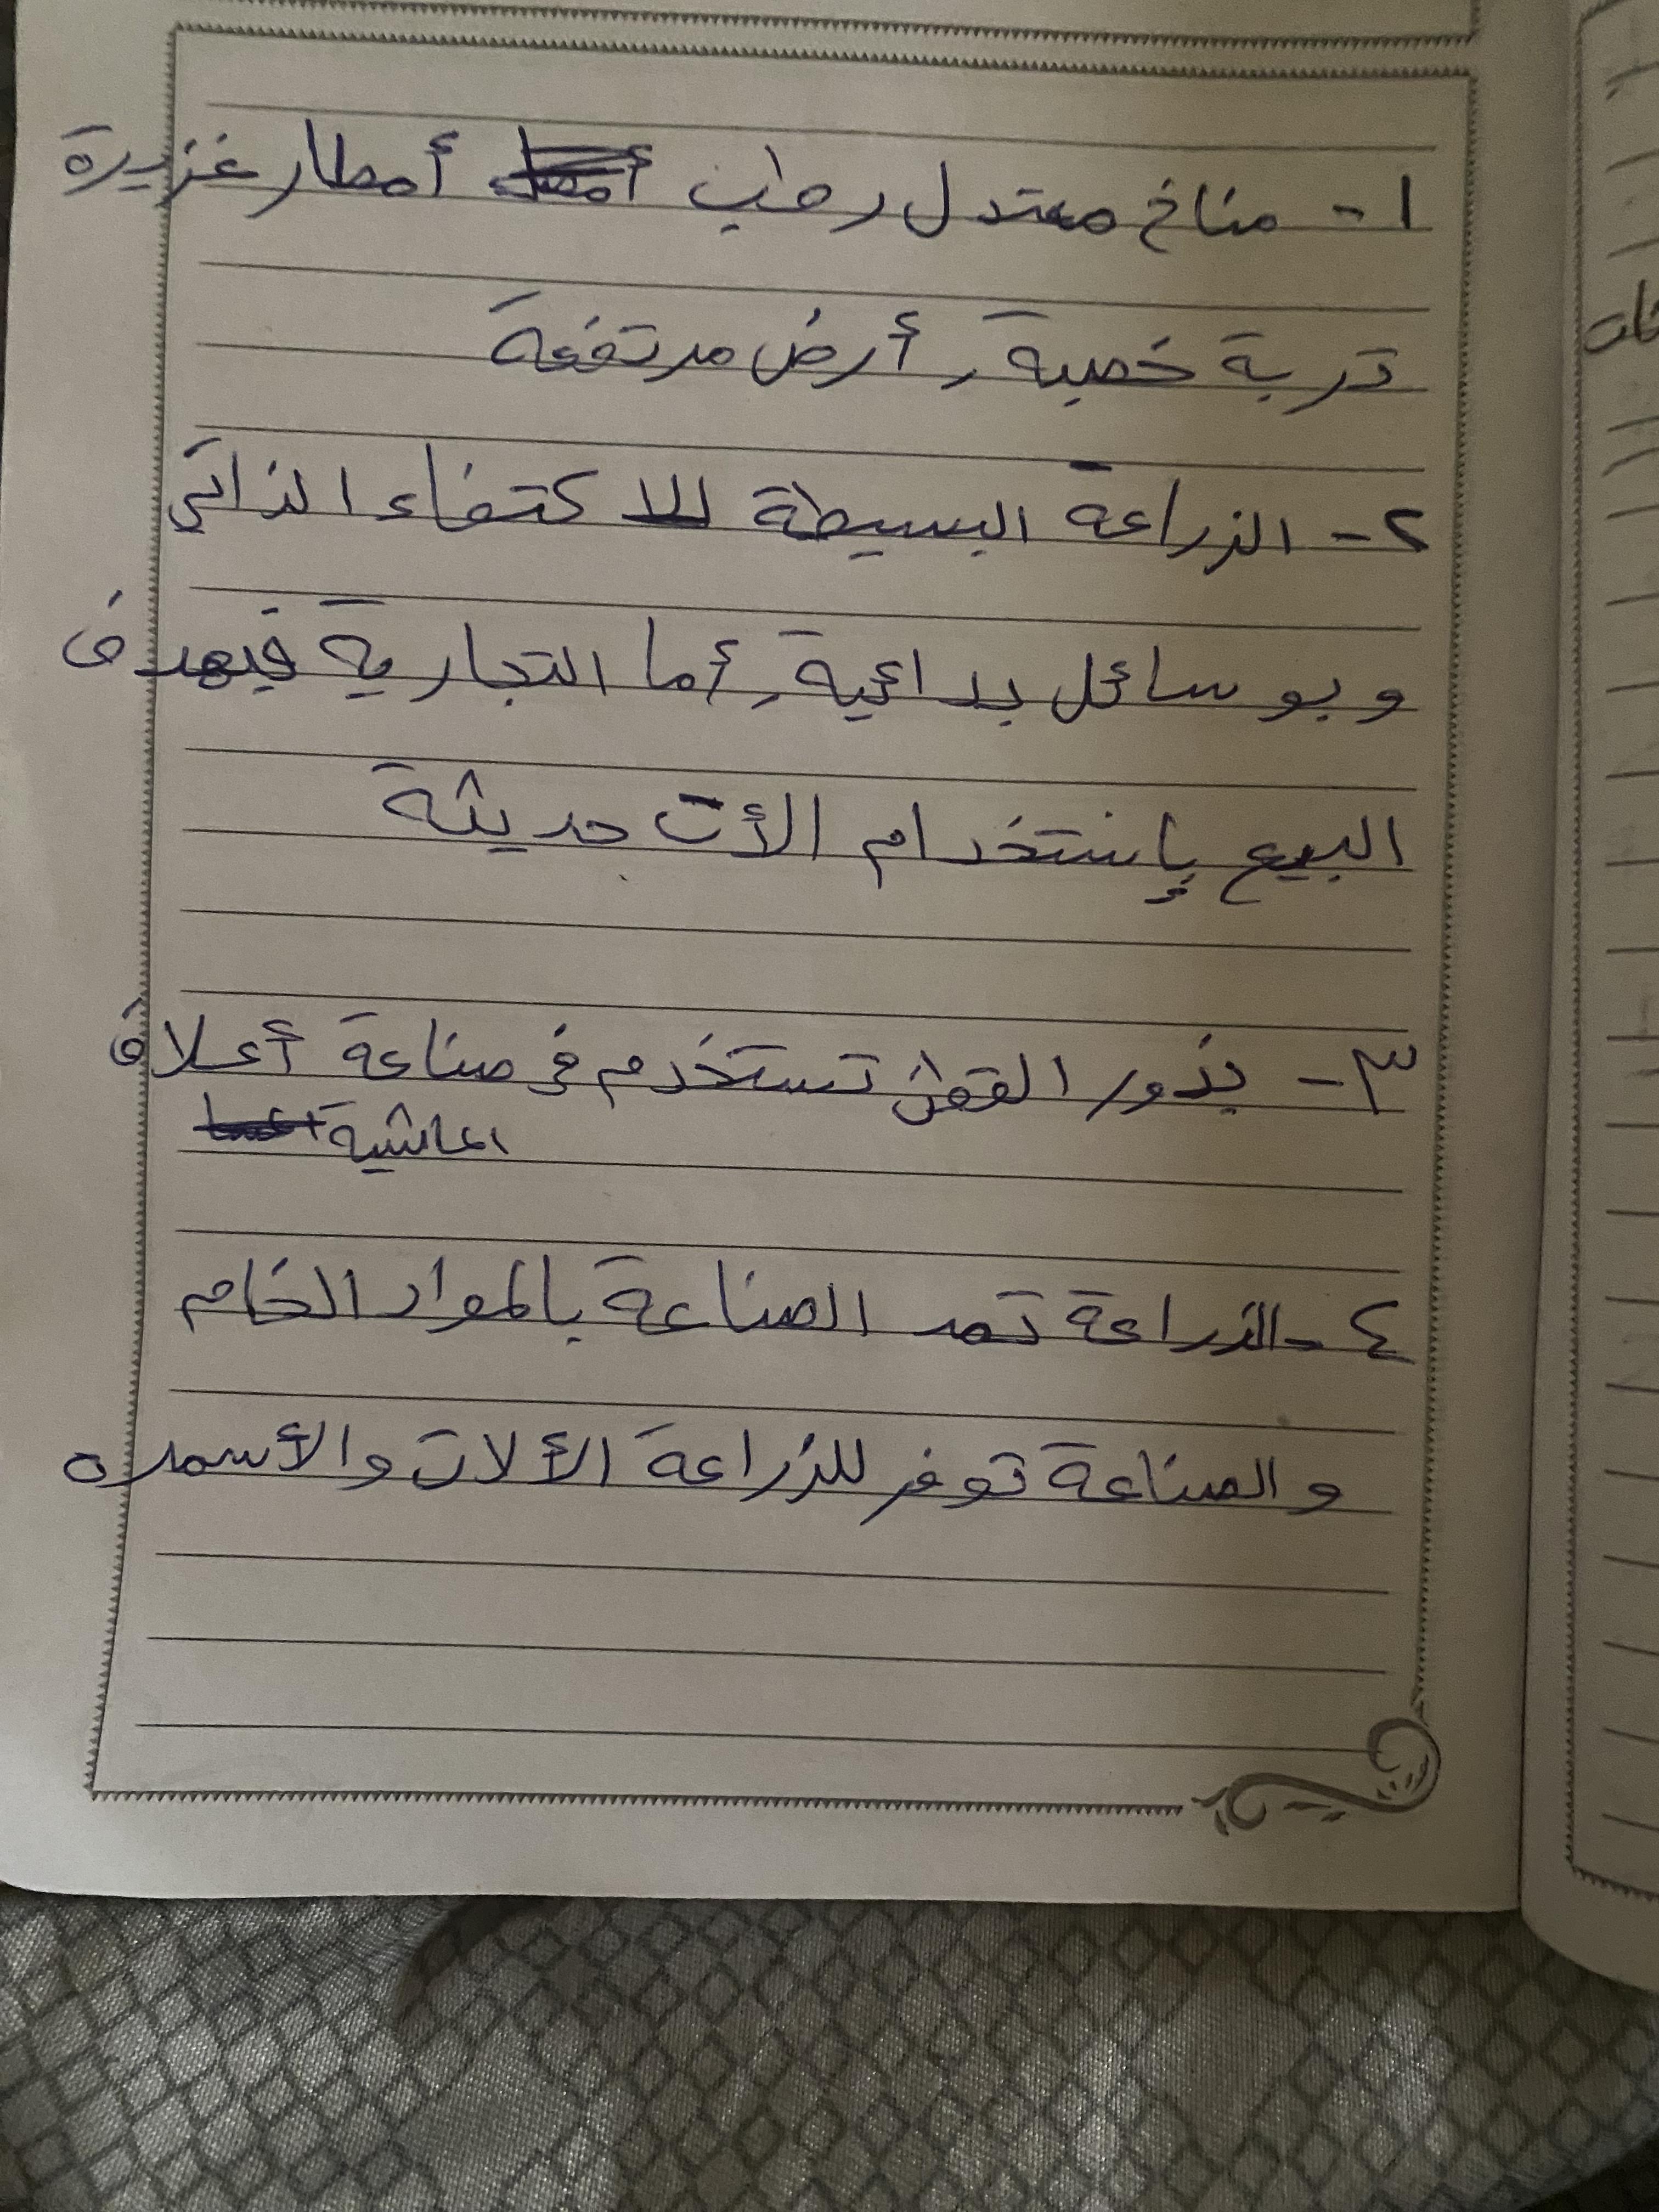 ١- مناخ معتدل رطب أمطار غزيرة
تربة خصبة, أرض مرتفعة
٢- الزراعة البسيطة للاكتفاء الذاتي
وبوسائل بدائية, أما التجارية فيهدف
البيع بإستخدام الأت حديثة
٣- بذور القطن تستخدم في صناعة أعلاف
الماشية
٤- الزراعة تمد الصناعة بالمواد الخام
والصناعة توفر للزراعة الألات والأسمده